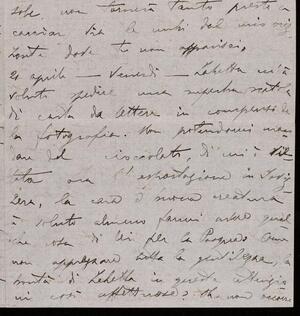 sole non tornerà tanto presto a
cacciar via le nubi dal mio oriz
zonte dove tu non apparisci.
20 aprile – Venerdì – Zabetta m'à
voluto spedire una superba scatola
di carta da lettere in compenso de
la fotografia. Non potendomi man
dare del cioccolato, di cui è vie
tata ora l'esportazione in Sviz
zera, la cara è buona creatura
à voluto almeno farmi avere qual
che cosa di lei per la Pasqua. Come
non apprezzare tutta la gentilezza, la
bontà di Zabetta in questa
in così affettuoso? Ma non